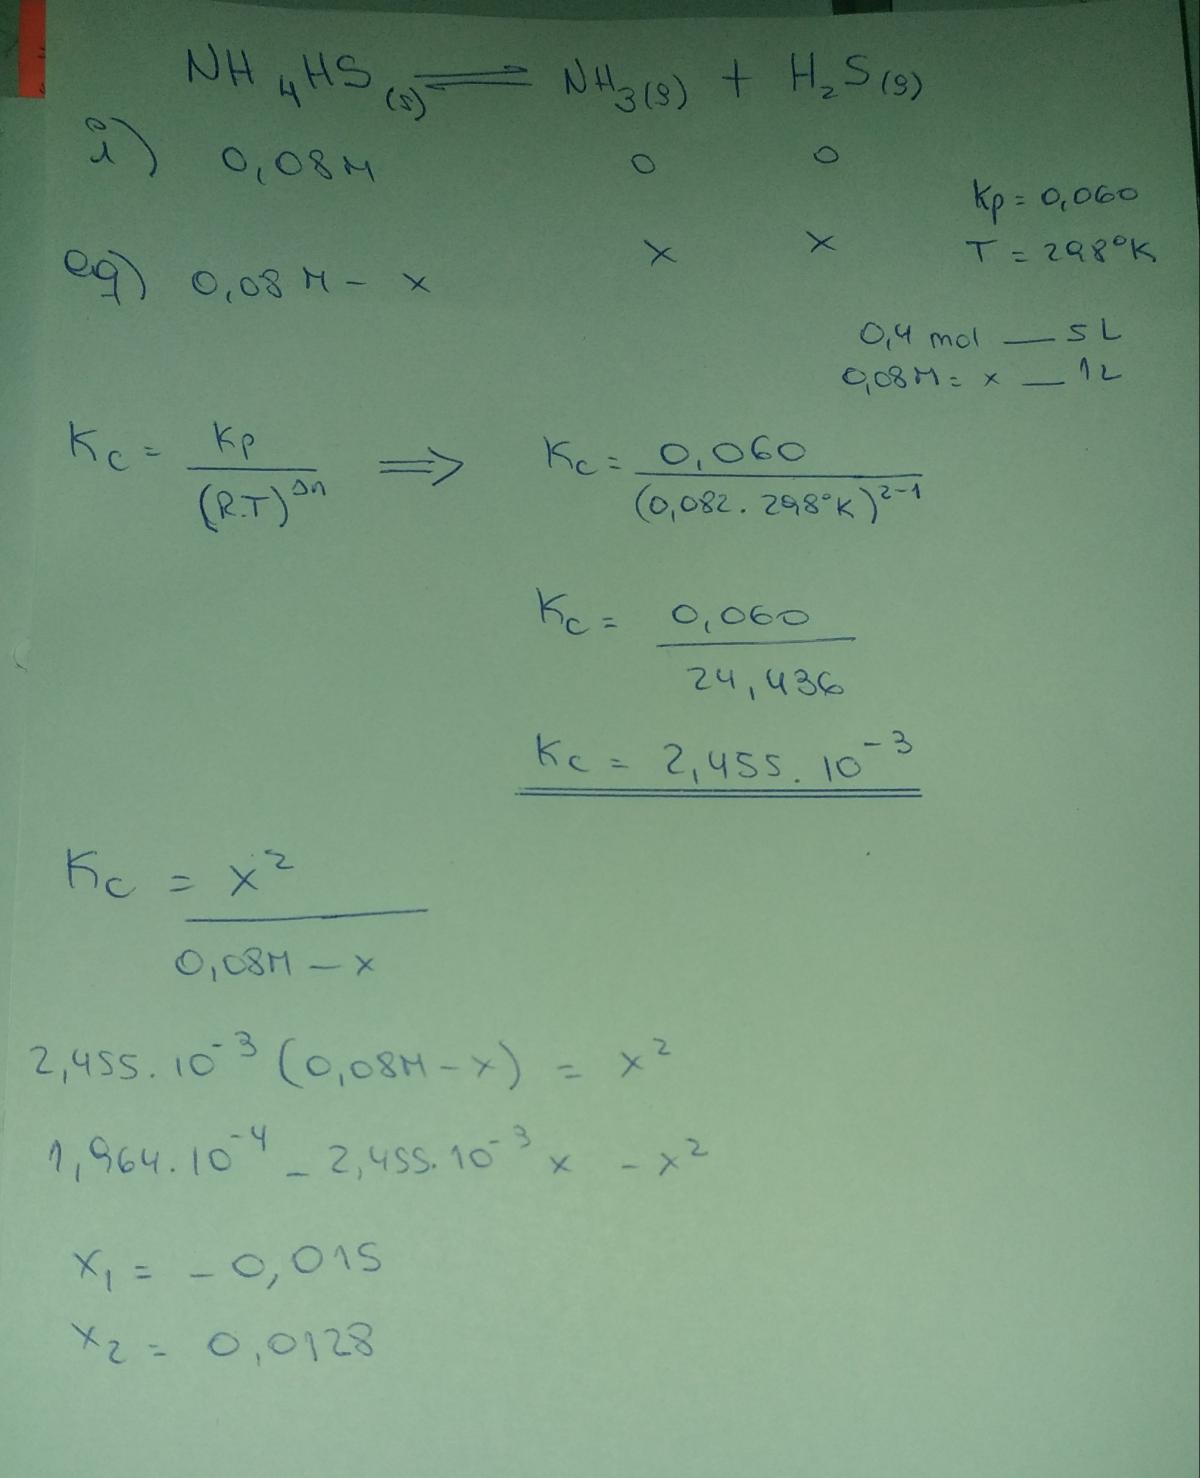 NH4HS(s) ⇌ NH3(g) + H2S(g)
i) 0,08M 0 0
Kp = 0,060
eq) 0,08M - x x x
T = 298°K
0,4 mol — 5 L
0,08M = x — 1L
Kc = Kp / (R.T)^Δn ⇒ Kc = 0,060 / (0,082 . 298°K)^2-1
Kc = 0,060 / 24,436
Kc = 2,455 . 10^-3
Kc = x^2 / 0,08M - x
2,455 . 10^-3 (0,08M - x) = x^2
1,964 . 10^-4 - 2,455 . 10^-3 x - x^2
x1 = - 0,015
x2 = 0,0128